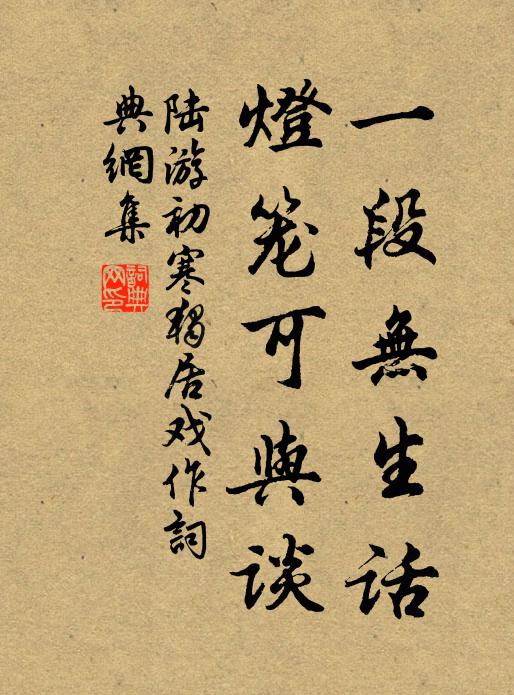 一段無生话
燈笼可與谈
陆游初寒獨居戏作詞
典網集
詞典網印